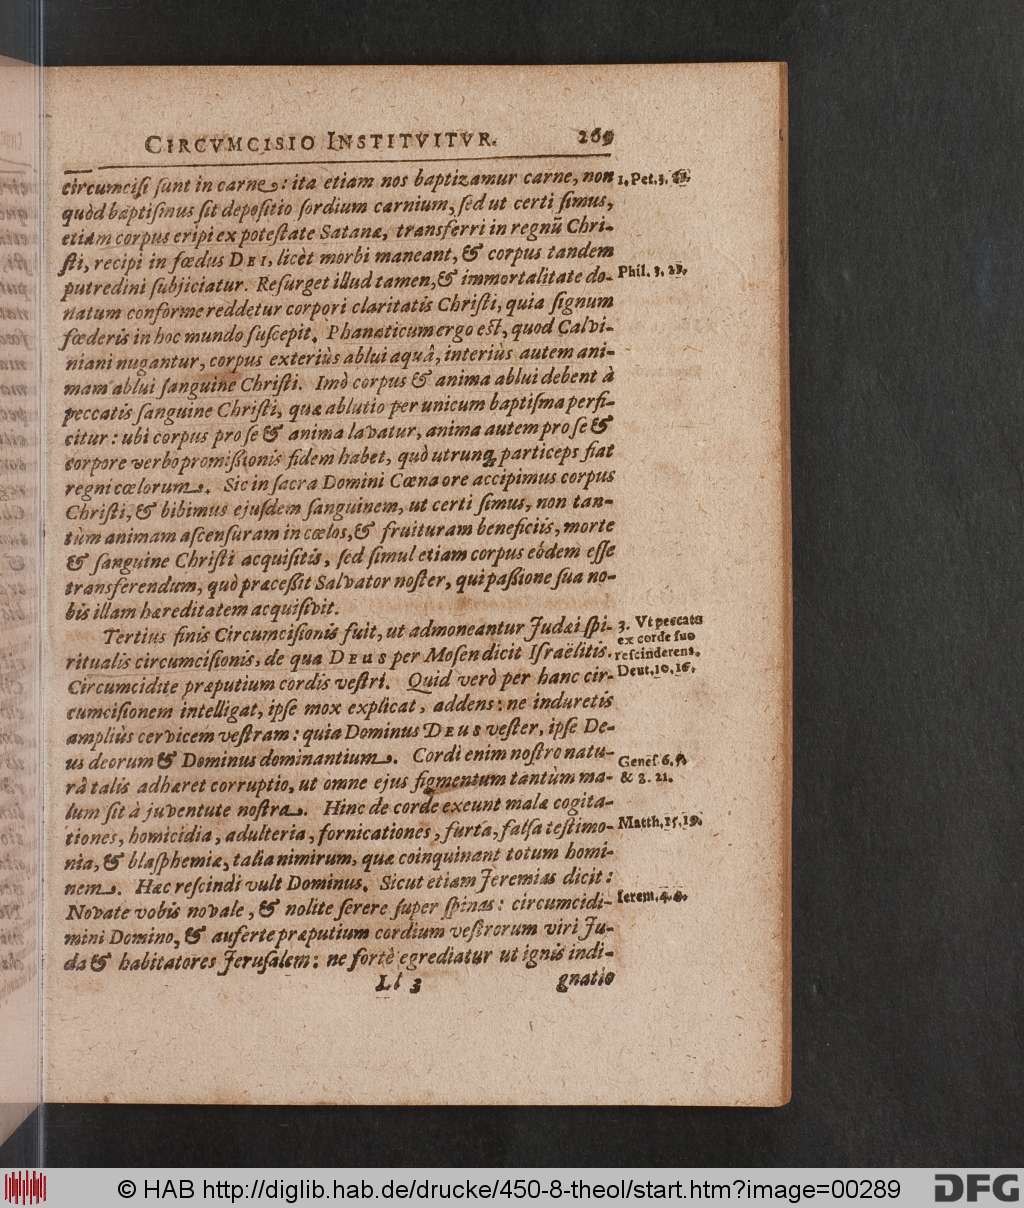 CIRCVMCISIO INSTITVITVR. 269
circumcisi sunt in carne: ita etiam nos baptizamur carne, non
quòd baptismus sit depositio sordium carnium, sed ut certi simus,
etiam corpus eripi ex potestate Satanæ, transferri in regnũ Chri-
sti, recipi in fœdus DEI, licèt morbi maneant, & corpus tandem
putredini subjiciatur. Resurget illud tamen, & immortalitate do-
natum conforme reddetur corpori claritatis Christi, quia signum
fœderis in hoc mundo suscepit. Phanaticum ergo est, quod Calvi-
niani nugantur, corpus exteriùs ablui aquâ, interiùs autem ani-
mam ablui sanguine Christi. Imò corpus & anima ablui debent à
peccatis sanguine Christi, quæ ablutio per unicum baptisma perfi-
citur: ubi corpus pro se & anima lavatur, anima autem pro se &
corpore verbo promissionis fidem habet, quò utrunq; particeps fiat
regni cœlorum. Sic in sacra Domini Cœna ore accipimus corpus
Christi, & bibimus ejusdem sanguinem, ut certi simus, non tan-
tùm animam ascensuram in cœlos, & fruituram beneficiis, morte
& sanguine Christi acquisitis, sed simul etiam corpus eòdem esse
transferendum, quò præcessit Salvator noster, qui passione sua no-
bis illam hæreditatem acquisivit.
Tertius finis Circumcisionis fuit, ut admoneantur Judæi spi-
ritualis circumcisionis, de qua DEUS per Mosen dicit Israëlitis.
Circumcidite præputium cordis vestri. Quid verò per hanc cir-
cumcisionem intelligat, ipse mox explicat, addens: ne induretis
ampliùs cervicem vestram: quia Dominus DEUS vester, ipse De-
us deorum & Dominus dominantium. Cordi enim nostro natu-
râ talis adhæret corruptio, ut omne ejus figmentum tantùm ma-
lum sit à juventute nostra. Hinc de corde exeunt malæ cogita-
tiones, homicidia, adulteria, fornicationes, furta, falsa testimo-
nia, & blasphemiæ, talia nimirum, quæ coinquinant totum homi-
nem. Hæc rescindi vult Dominus. Sicut etiam Jeremias dicit:
Novate vobis novale, & nolite serere super spinas: circumcidi-
mini Domino, & auferte præputium cordium vestrorum viri Ju-
da & habitatores Jerusalem: ne fortè egrediatur ut ignis indi-
Ll 3 gnatio
1. Pet. 3.
Phil. 3. 21.
3. Vt peccata
ex corde suo
rescinderent.
Deut. 10. 16.
Genes. 6. 5.
& 8. 21.
Matth. 15. 19.
Ierem. 4. 4.
© HAB http://diglib.hab.de/drucke/450-8-theol/start.htm?image=00289
DFG